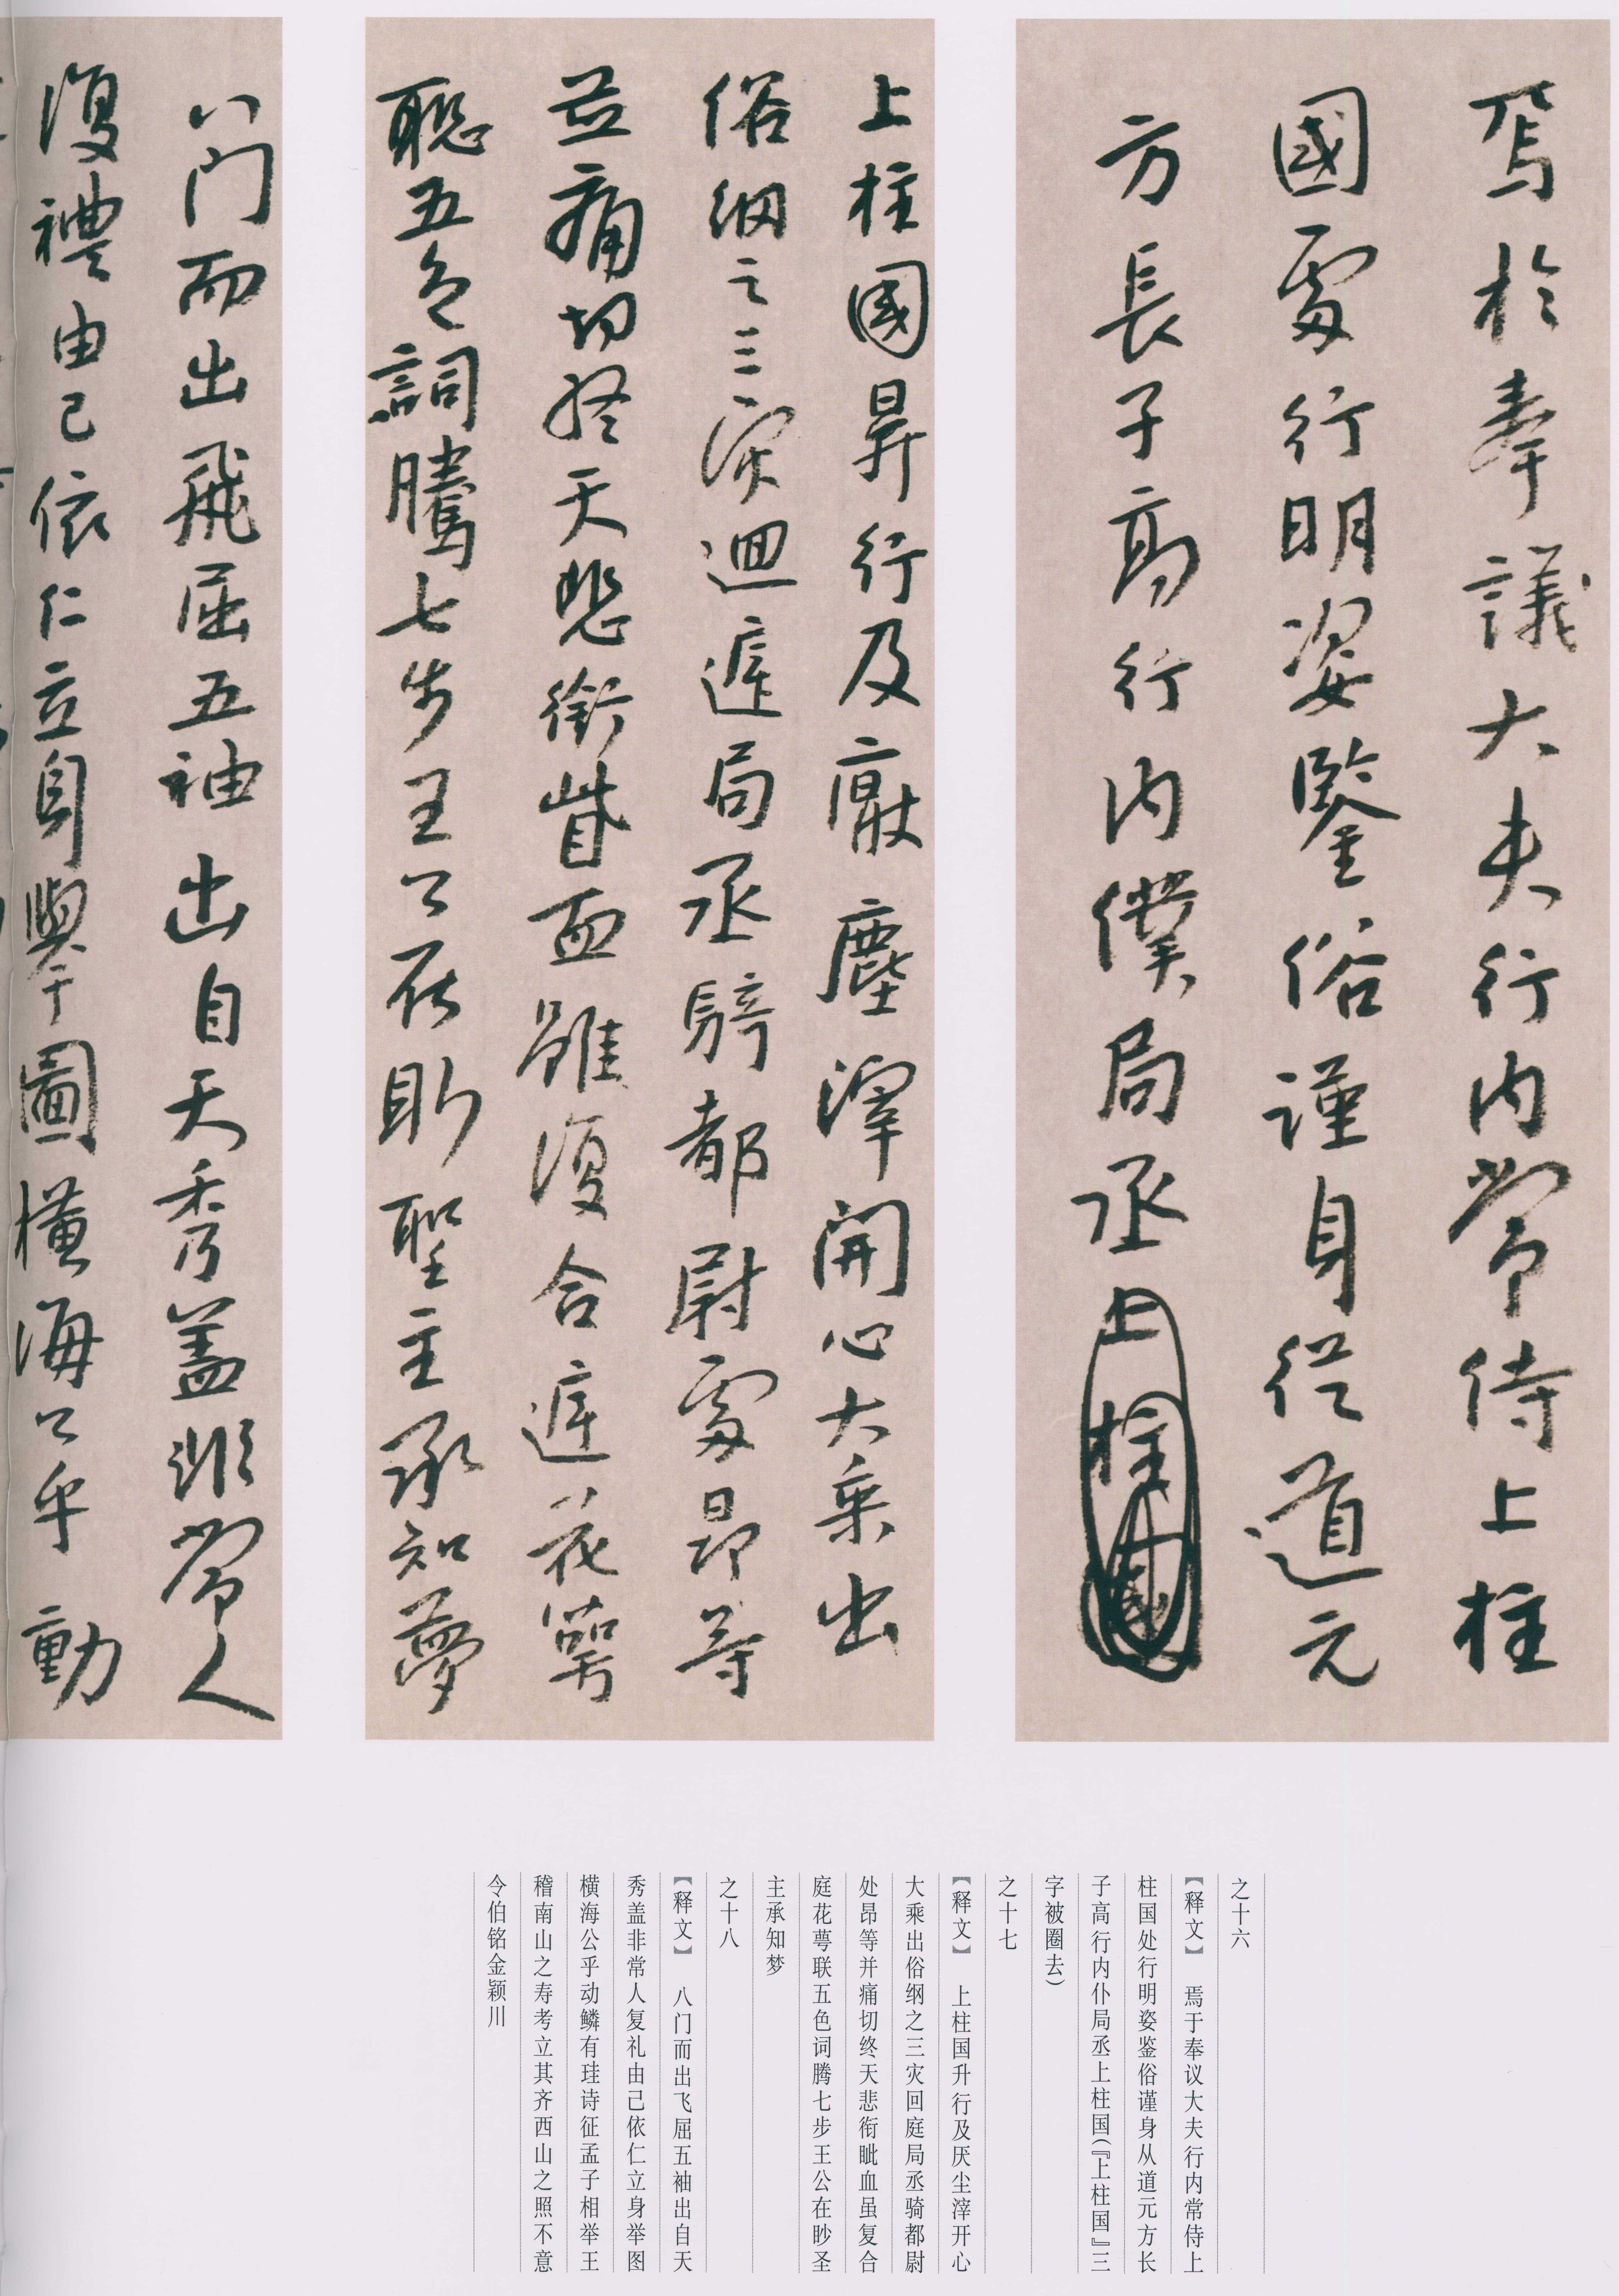 焉於奉議大夫行内常侍上柱
國處行明姿鑒俗謹身從道元
方長子高行内僕局丞上柱國
上柱國昇行及厭塵滓開心大乘出
俗綱之三灾迴遑局丞騎都尉處昂等
並痛切終天悲銜眦血雖復合遑花萼
聯五色詞騰七步王公在眇聖主承知夢
八門而出飛屈五袖出自天秀盖非常人
復禮由己依仁立身舉圖橫海公乎動
之十六
【释文】 焉于奉议大夫行内常侍上
柱国处行明姿鉴俗谨身从道元方长
子高行内仆局丞上柱国(『上柱国』三
字被圈去)
之十七
【释文】 上柱国升行及厌尘滓开心
大乘出俗纲之三灾回庭局丞骑都尉
处昂等并痛切终天悲衔眦血虽复合
庭花萼联五色词腾七步王公在眇圣
主承知梦
之十八
【释文】 八门而出飞屈五袖出自天
秀盖非常人复礼由己依仁立身举图
横海公乎动鳞有珪诗征孟子相举王
稽南山之寿考立其齐西山之照不意
令伯铭金颖川